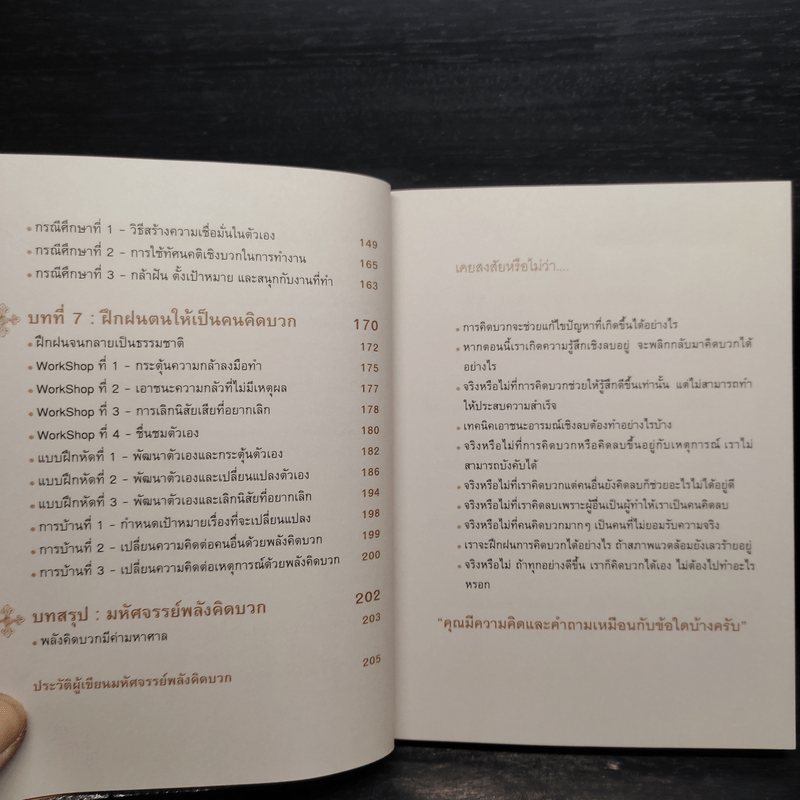 กรณีศึกษาที่ 1 - วิธีสร้างความเชื่อมั่นในตัวเอง 149
กรณีศึกษาที่ 2 - การใช้ทัศนคติเชิงบวกในการทำงาน 165
กรณีศึกษาที่ 3 - กล้าฝัน ตั้งเป้าหมาย และสนุกกับงานที่ทำ 163
บทที่ 7 : ฝึกฝนตนให้เป็นคนคิดบวก 170
ฝึกฝนจนกลายเป็นธรรมชาติ 172
WorkShop ที่ 1 - กระตุ้นความกล้าลงมือทำ 175
WorkShop ที่ 2 - เอาชนะความกลัวที่ไม่มีเหตุผล 177
WorkShop ที่ 3 - การเลิกนิสัยเสียที่อยากเลิก 178
WorkShop ที่ 4 - ชื่นชมตัวเอง 180
แบบฝึกหัดที่ 1 - พัฒนาตัวเองและกระตุ้นตัวเอง 182
แบบฝึกหัดที่ 2 - พัฒนาตัวเองและเปลี่ยนแปลงตัวเอง 186
แบบฝึกหัดที่ 3 - พัฒนาตัวเองและเลิกนิสัยที่อยากเลิก 194
การบ้านที่ 1 - กำหนดเป้าหมายเรื่องที่จะเปลี่ยนแปลง 198
การบ้านที่ 2 - เปลี่ยนความคิดต่อคนอื่นด้วยพลังคิดบวก 199
การบ้านที่ 3 - เปลี่ยนความคิดต่อเหตุการณ์ด้วยพลังคิดบวก 200
บทสรุป : มหัศจรรย์พลังคิดบวก 202
พลังคิดบวกมีค่ามหาศาล 203
ประวัติผู้เขียนมหัศจรรย์พลังคิดบวก 205
เคยสงสัยหรือไม่ว่า....
การคิดบวกจะช่วยแก้ไขปัญหาที่เกิดขึ้นได้อย่างไร
หากตอนนี้เราเกิดความรู้สึกเชิงลบอยู่ จะพลิกกลับมาคิดบวกได้
อย่างไร
จริงหรือไม่ที่การคิดบวกช่วยให้รู้สึกดีขึ้นเท่านั้น แต่ไม่สามารถทำ
ให้ประสบความสำเร็จ
เทคนิคเอาชนะอารมณ์เชิงลบต้องทำอย่างไรบ้าง
จริงหรือไม่ที่การคิดบวกหรือคิดลบขึ้นอยู่กับเหตุการณ์ เราไม่
สามารถบังคับได้
จริงหรือไม่ที่เราคิดบวกแต่คนอื่นยังคิดลบก็ช่วยอะไรไม่ได้อยู่ดี
จริงหรือไม่ที่เราคิดลบเพราะผู้อื่นเป็นผู้ทำให้เราเป็นคนคิดลบ
จริงหรือไม่ที่คนคิดบวกมากๆ เป็นคนที่ไม่ยอมรับความจริง
เราจะฝึกฝนการคิดบวกได้อย่างไร ถ้าสภาพแวดล้อมยังเลวร้ายอยู่
จริงหรือไม่ ถ้าทุกอย่างดีขึ้น เราก็คิดบวกได้เอง ไม่ต้องไปทำอะไร
หรอก
"คุณมีความคิดและคำถามเหมือนกับข้อใดบ้างครับ"